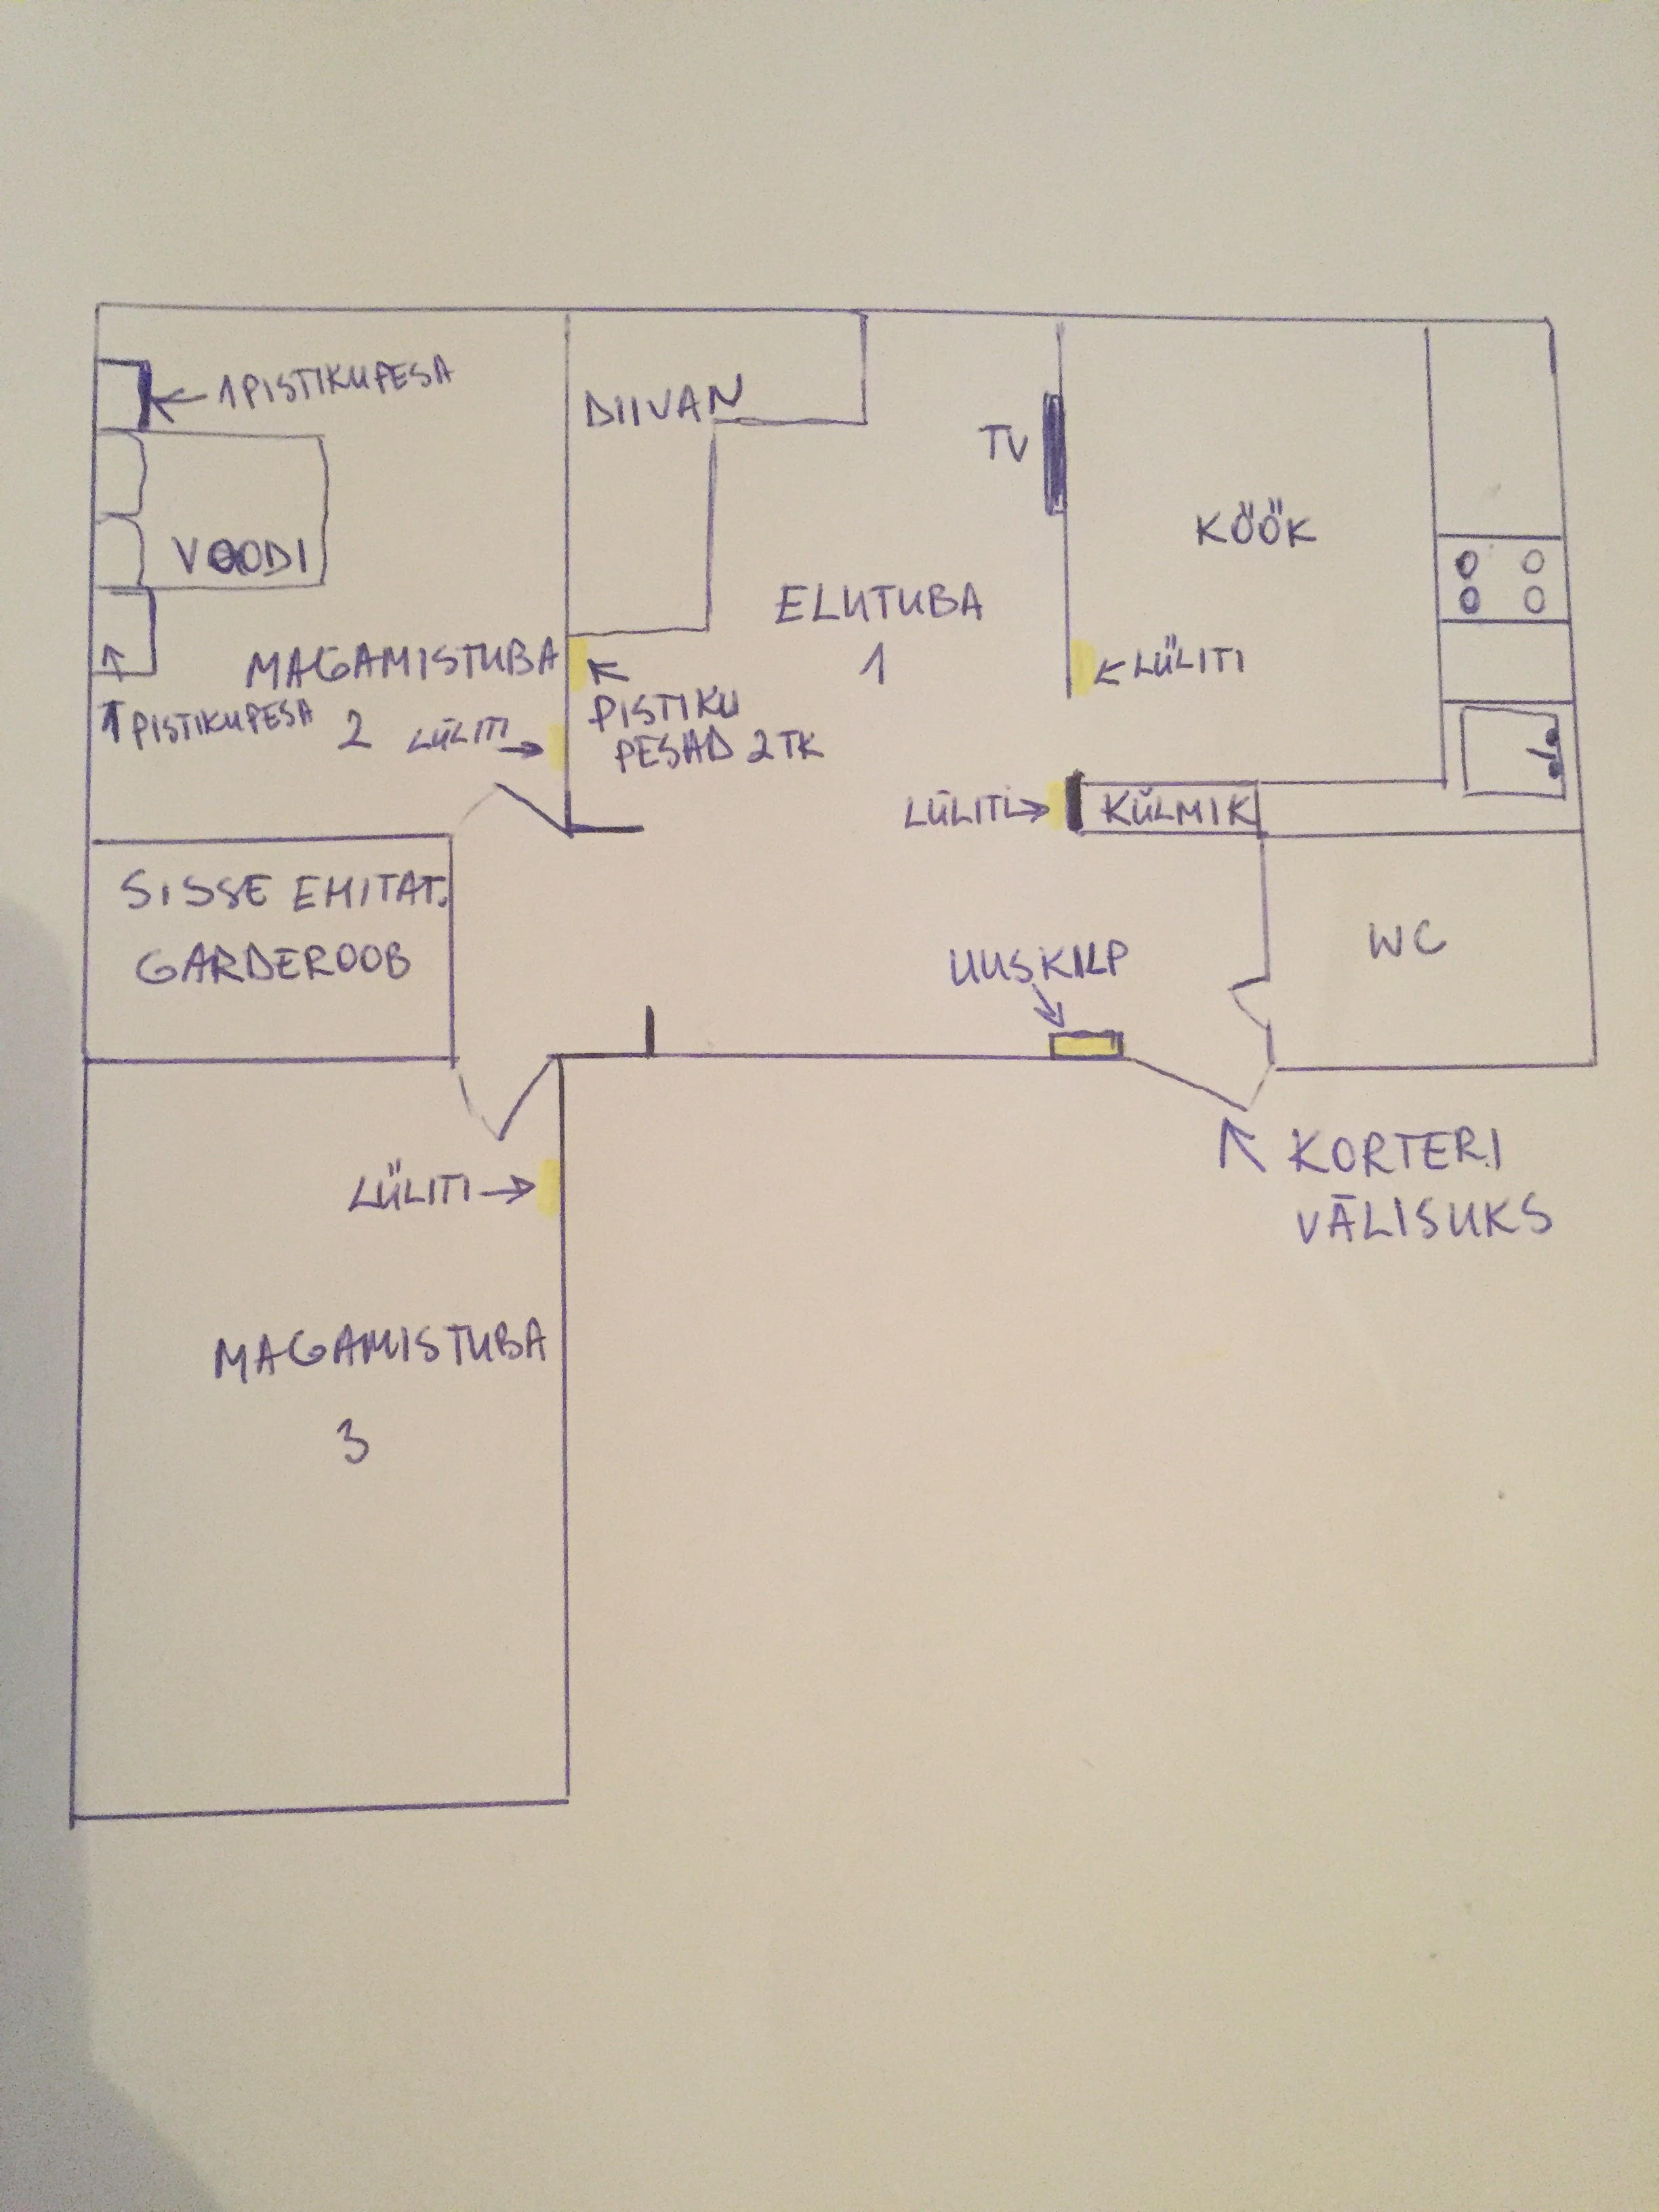 1 PISTIKUPESA
DIIVAN
TV
KÖÖK
VOODI
ELUTUBA
1
MAGAMISTUBA
2
1 PISTIKUPESA
LÜLITI
PISTIKU
PESAD 2TK
LÜLITI
LÜLITI
KÜLMIK
SISSE EHITAT.
GARDEROOB
UUS KILP
WC
KORTERI
VÄLISUKS
LÜLITI
MAGAMISTUBA
3